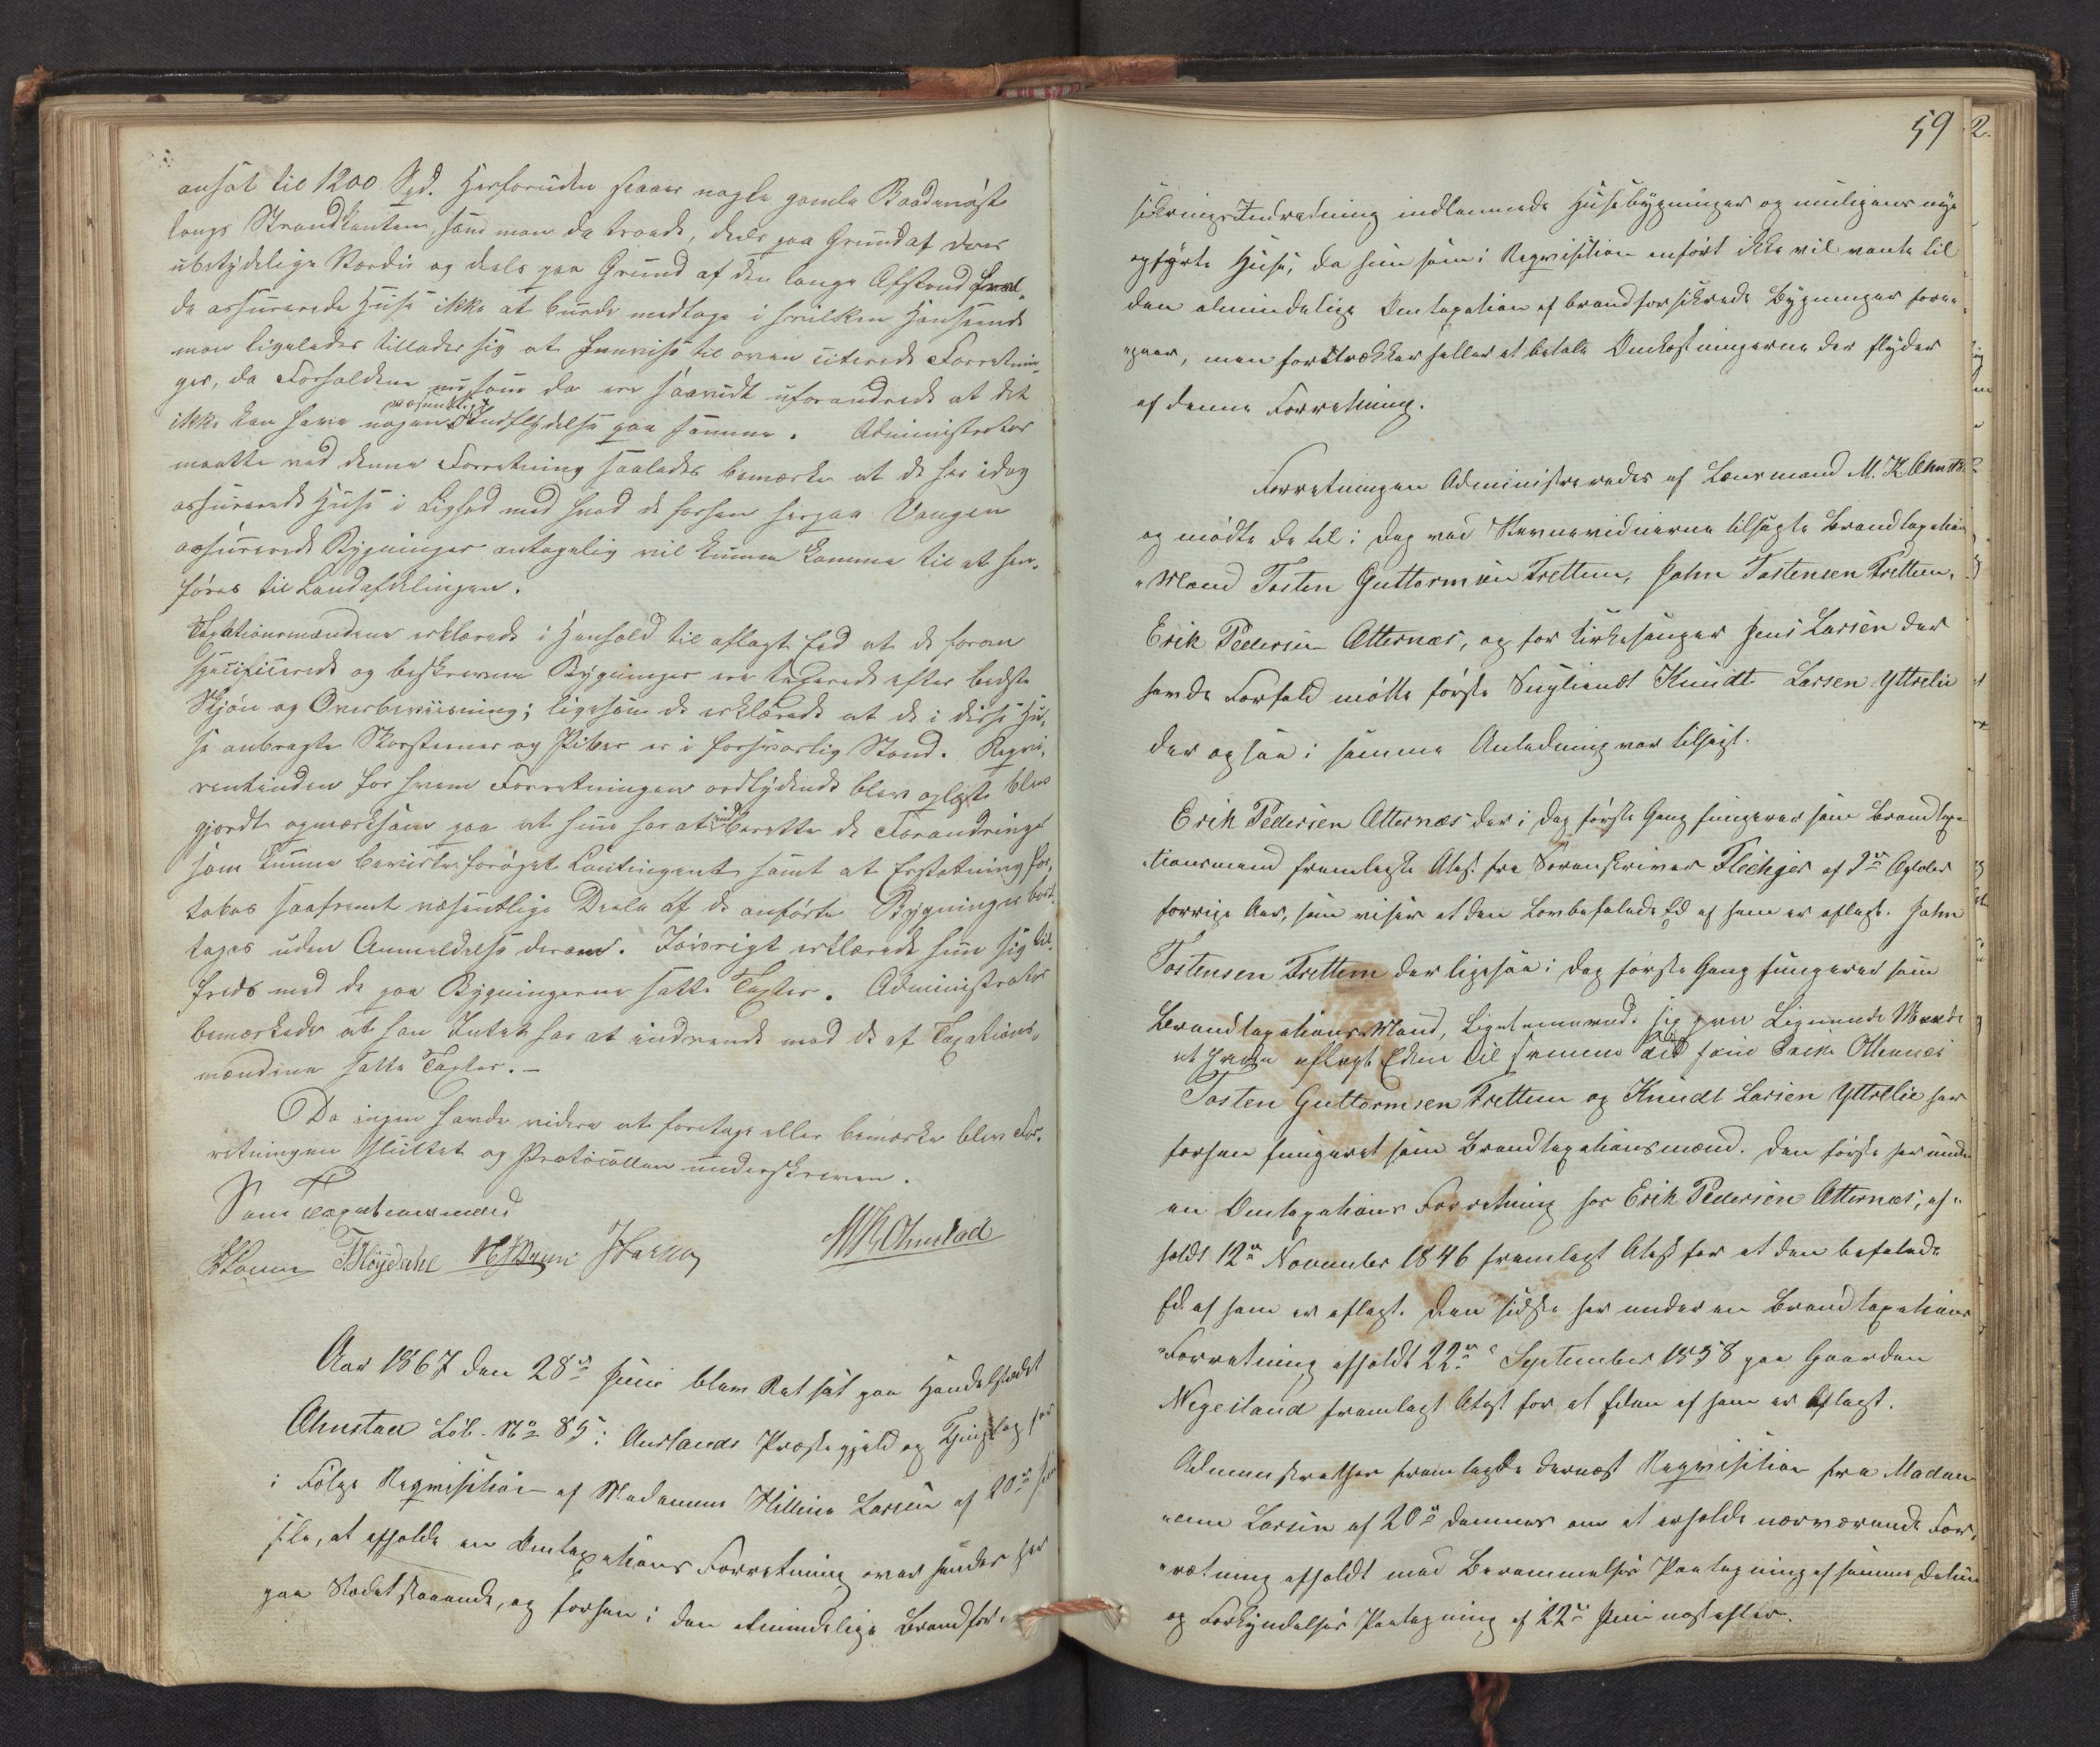 ansat til 1200 Spd. Herforuden staaer nogle gamle Baadenøste
langs Strandkanten, som man da troede, deels paa Grund af deres
ubetydelige Værdie og deels paa Grund af den lange Afstand fra
de assurerede Huse ikke at burde medtage i hvilken Henseende
man ligeledes tillader sig at henvise til oven citerede Forretnin-
ger, da Forholdene nu som da ere saavidt uforandrede at det
væsentligt
ikke kan have nogen Indflydelse paa samme. Administrator
maatte ved denne Forretning saaledes bemærke at de her idag
assurerede Huse i Lighed med hvad de forhen herpaa Vangen
assurerede Bygninger antagelig vil kunne komme til at hen-
føres til Landafdelingen.
Taxtationsmændene erklærede i Henhold til aflagt Eed at de foran
specificerede og beskrevne Bygninger ere taxerede efter bedste
Skjøn og Overbeviisning; ligesom de erklærede at de i disse Hu-
se anbragte Skorstener og Piber er i forsvarlig Stand. Reqvi-
rentinden for hvem Forretningen ordlydende blev oplæst blev
gjordt opmærksom paa at hun har at indberette de Forandringer
som kunne bevirke forøget Contingent samt at Erstatning for-
tabes saafremt væsentlige Deele af de anførte Bygninger bort-
tages uden Anmeldelse derom. Iøvrigt erklærede hun sig til-
freds med de paa Bygningerne satte Taxter. Administrator
bemærkede at han Intet har at indvende mod de af Taxations-
mændene satte Taxter. -
Da ingen havde videre at foretage eller bemærke blev For-
retningen sluttet og Protocollen underskreven.
Som Taxationsmænd
T Fløydahl J Larsen M K Ohnstad
Aar 1867 den 28de Juni blev Ret sat paa Handelstedet
Ohnstad Löb. No 85 i Aurlands Præstegjeld og Thinglag
i Følge Reqvisition af Madamme Helline Larsen af 20de
sele, at afholde en Omtaxations Forretning over hendes her
paa Stædet staaende, og forhen i den almindelige Brandfor-
59
sikringsIndretning indlemmede Husebygninger og muligens nye
opførte Huse, da hun som i Reqvisition anført ikke vil vente til
den almindelige Omtaxation af brandforsikrede Bygninger fore-
gaaer, men foretrækker heller at betale Omkostningerne der flyder
af denne Forretning.
Forretningen Administreredes af Lensmand M. K. Ohnstad
og mødte de til i Dag ved Stevnevidnerne tilsagte Brandtaxations
Mænd Tosten Guttormsen Frettem, John Tostensen Frettem,
Erik Pedersen Otternæs, og for Kirkesanger Jens Larsen der
havde Forfald mötte første Supliendt Knudt Larsen Yttrelie
der ogsaa i samme Anledning var tilsagt.
Erik Pedersen Otternæs der i Dag første Gang fungerer som Brandtaxa-
tionsmand fremlagte Atest fra Sorenskriver Fleischer af 9de October
forrige Aar, som viser at den Lovbefalede Ed af ham er aflagt. John
Tostensen Frettem der ligesaa i Dag første Gang fungerer som
Brandtaxations Mand,
at have aflagt Eden til samme Tid som Erik Otternæs
Tosten Guttormsen Frettem og Knudt Larsen Yttrelie har
forhen fungeret som Brandtaxationsmænd. Den første har under
en Omtaxations Forretning hos Erik Pedersen Otternæs, af-
holdt 12te November 1846 fremlagt Atest for at den befalede
Ed af ham er aflagt. Den sidste har under en Brandtaxations
Forretning afholdt 22de September 1858 paa Gaarden
Wigesland fremlagt Atest for at Eden af ham er aflagt.
Administrator fremlagde dernæst Reqvisition fra Madam
Larsen af 20de dennes om at erholde nærværende For-
retning afholdt med Berammelses Paategning af samme Datum
og Forkyndelses Paategning af 22de Juni næstefter.
2.